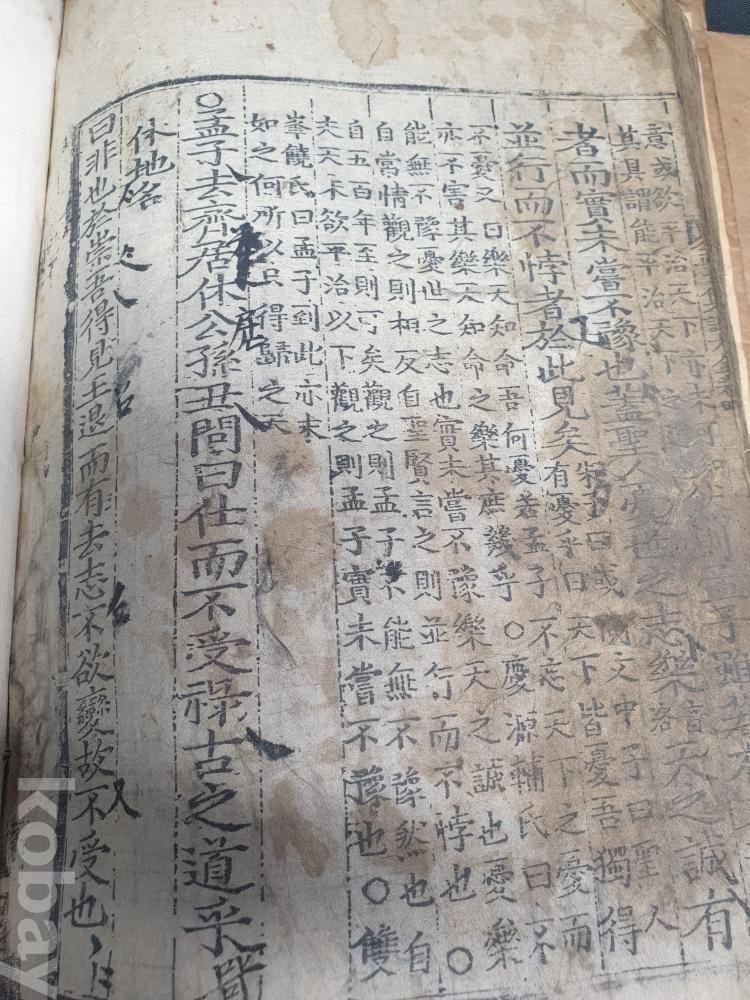 意或欲平治天下
其具謂能平治天下
則孟子雖若
者而實未嘗不豫也蓋聖人憂世之志樂音洛天之誠有
並行而不悖者於此見矣
朱子曰或問文中子曰聖人
有憂乎曰天下皆憂吾獨得
不憂又曰樂天知命吾何憂若孟子不忘天下之憂而
亦不害其樂天知命之樂其庶幾乎○慶源輔氏曰不
能無不豫憂世之志也實未嘗不豫樂天之誠也憂樂
自常情觀之則相反自聖賢言之則並行而不悖也○
自五百年至則可矣觀之則孟子不能無不豫然也自
夫天未欲平治以下觀之則孟子實未嘗不豫也○雙
峯饒氏曰孟子到此亦未
如之何所以只得歸之天
○孟子去齊居休公孫丑問曰仕而不受祿古之道乎
休地名
曰非也於崇吾得見王退而有去志不欲變故不受也
kobay